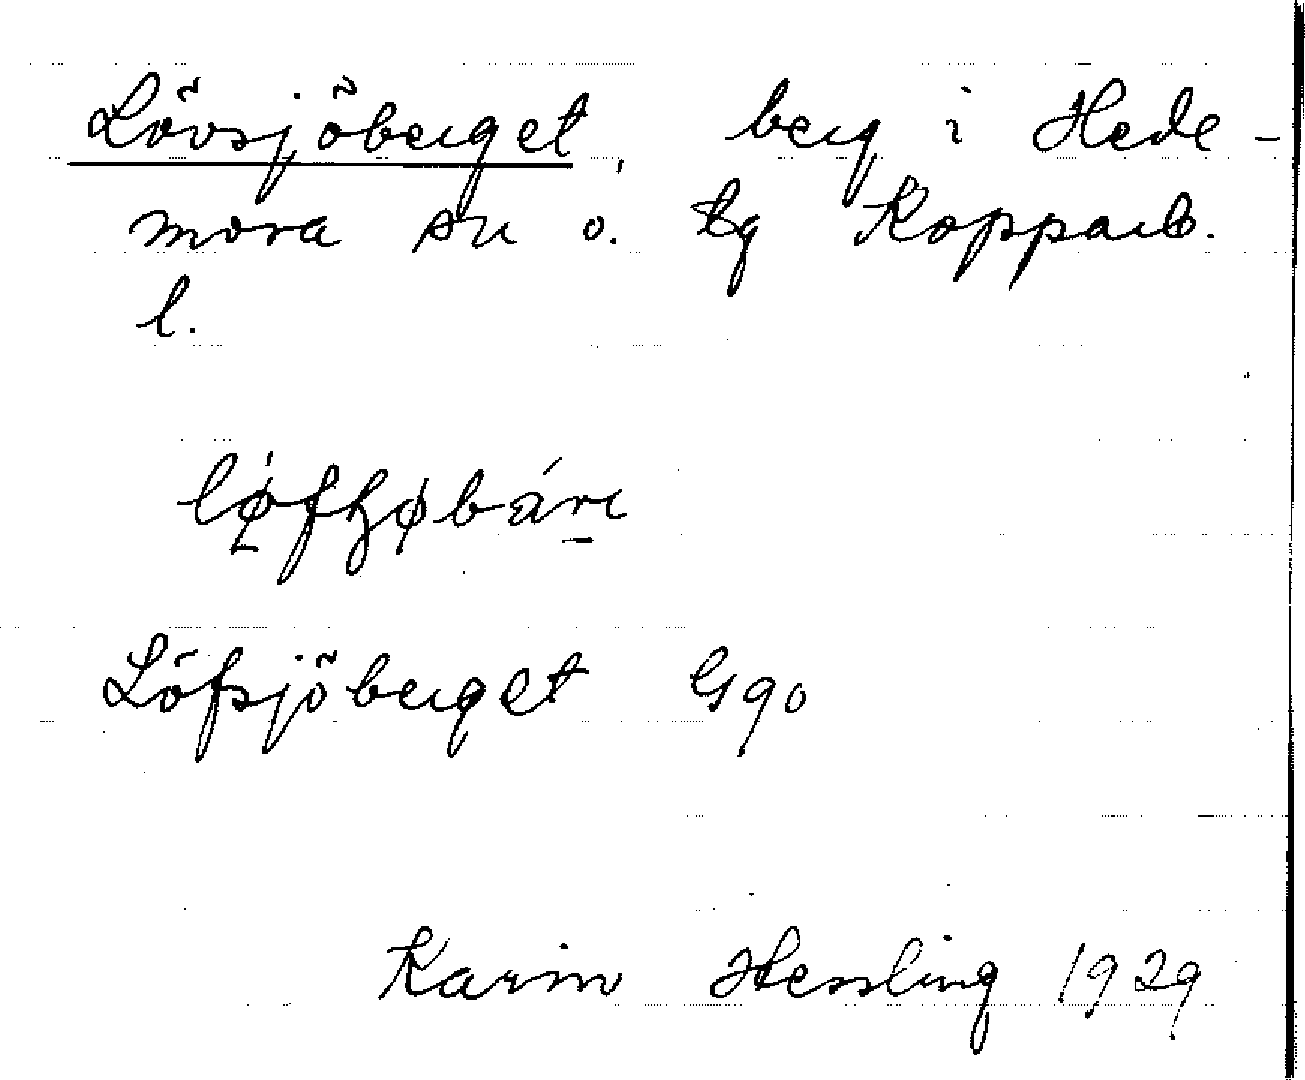 Lövsjöberget, berg i Hede-
mora sn o. tg Kopparb.
l.
Löfsjöberget Gqo
Karin Hessling 1929